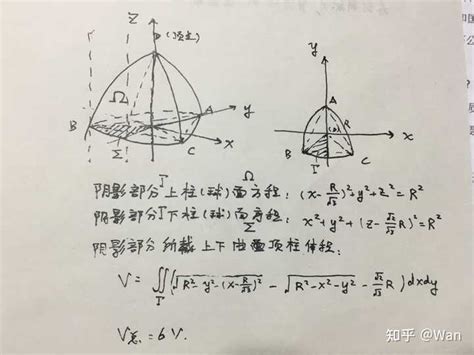 z
(顶点)
Ω
A
y
B
Σ
C
x
y
A
R
x
B
I
C
阴影部分I上柱(球)面方程: (x-R/√3)²+y²+z²=R²
Ω
阴影部分I下柱(球)面方程: x²+y²+(z-√2/√3 R)²=R²
Σ
阴影部分所截上下曲面顶柱体程:
V= ∬_I (√(R²-y²-(x-R/√3)²) - √(R²-x²-y²) - √2/√3 R) dxdy
V总=6V.
知乎 @Wan